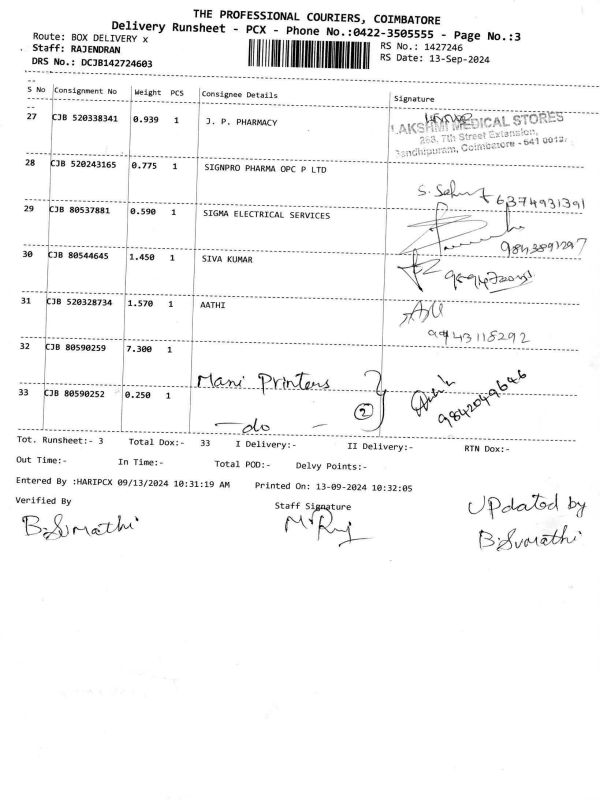 THE PROFESSIONAL COURIERS, COIMBATORE
Delivery Runsheet - PCX - Phone No.:0422-3505555 - Page No.:3
Route: BOX DELIVERY x
RS No.: 1427246
Staff: RAJENDRAN
RS Date: 13-Sep-2024
DRS No.: DCJB142724603
S No Consignment No Weight PCS Consignee Details Signature
27 CJB 520338341 0.939 1 J. P. PHARMACY
LAKSHMI MEDICAL STORES
263, 7th Street Extension,
Gandhipuram, Coimbatore - 641 0012.
28 CJB 520243165 0.775 1 SIGNPRO PHARMA OPC P LTD
6374931391
29 CJB 80537881 0.590 1 SIGMA ELECTRICAL SERVICES
9843891297
30 CJB 80544645 1.450 1 SIVA KUMAR
31 CJB 520328734 1.570 1 AATHI
9943118292
32 CJB 80590259 7.300 1
Mani Printers
33 CJB 80590252 0.250 1
- do -
2
9842049646
Tot. Runsheet:- 3 Total Dox:- 33 I Delivery:- II Delivery:- RTN Dox:-
Out Time:- In Time:- Total POD:- Delvy Points:-
Entered By :HARIPCX 09/13/2024 10:31:19 AM Printed On: 13-09-2024 10:32:05
Verified By
Staff Signature
B.Sumathi
Updated by
B.Sumathi